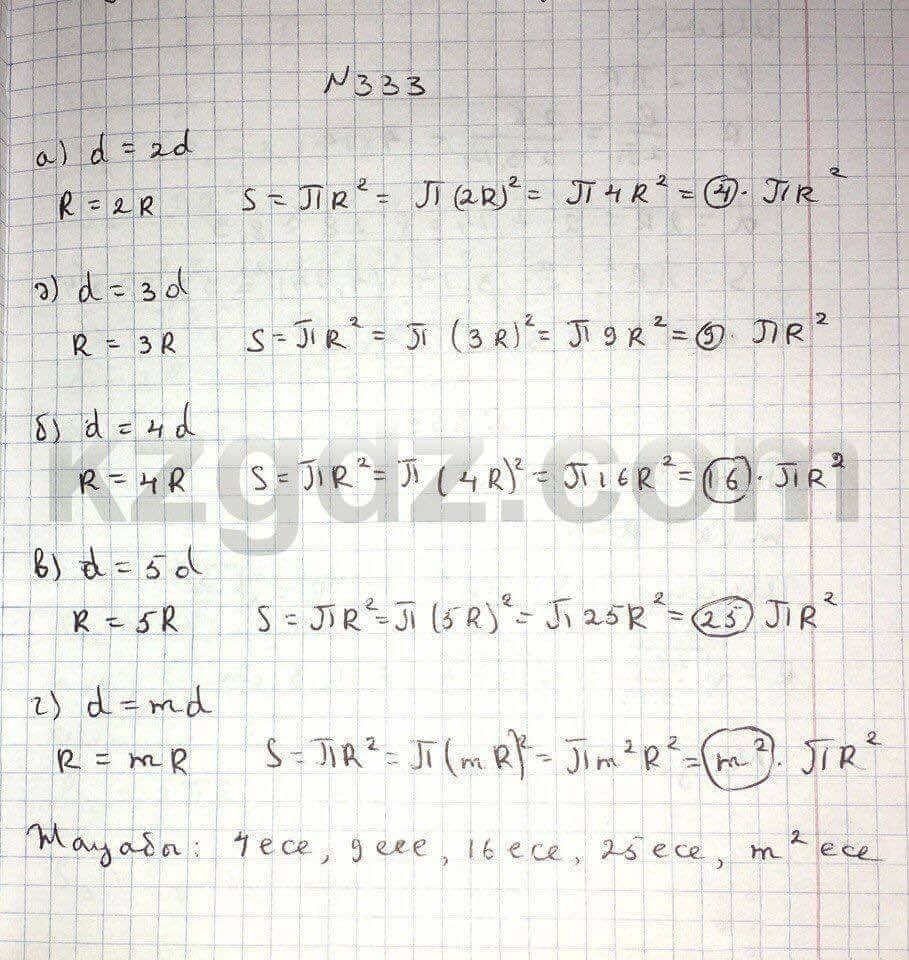 N333
а) d = 2d
R = 2R S = πR² = π(2R)² = π4R² = 4 · πR²
ә) d = 3d
R = 3R S = πR² = π(3R)² = π9R² = 9 · πR²
б) d = 4d
R = 4R S = πR² = π(4R)² = π16R² = 16 · πR²
kzgdz.com
в) d = 5d
R = 5R S = πR² = π(5R)² = π25R² = 25 πR²
г) d = md
R = mR S = πR² = π(mR)² = πm²R² = m² · πR²
Жауабы: 4 есе, 9 есе, 16 есе, 25 есе, m² есе